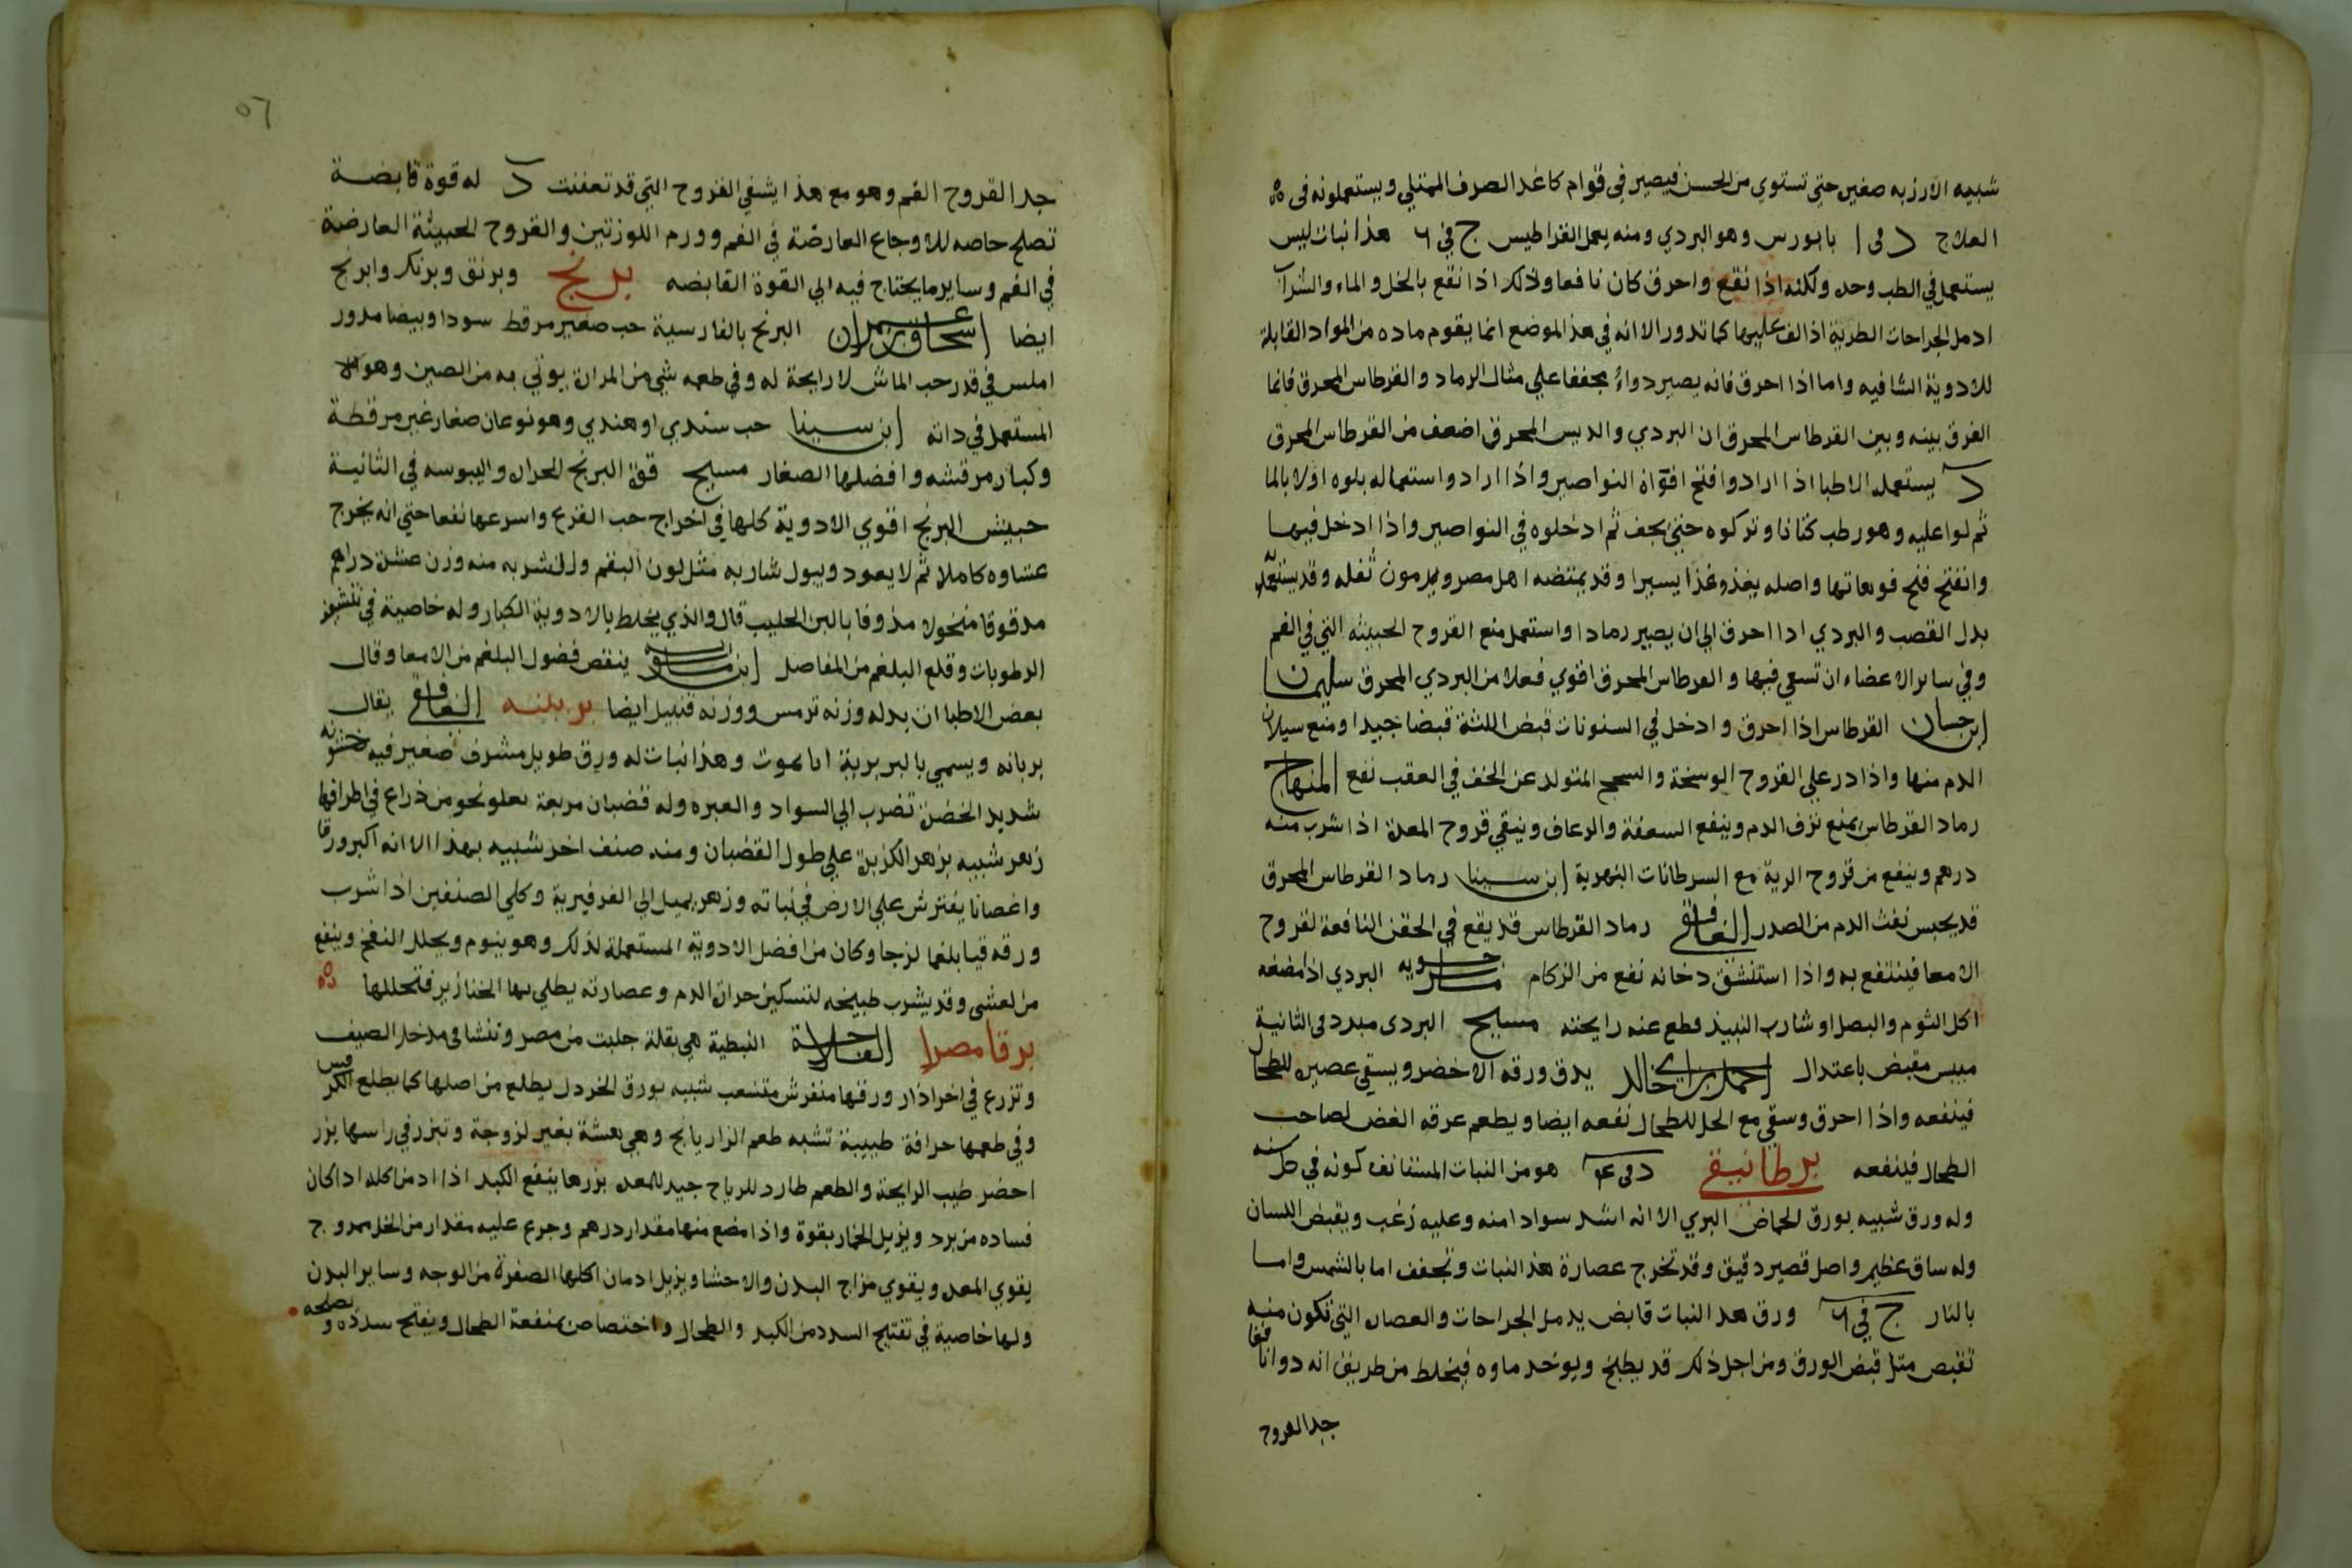 شبيه الارزبه صغين حتى تستوي من الحسن فيصير في قوام كاغد الصرف الممتلي ويستعملونه فى
العلاج د فى ا بابورس وهو البردي ومنه يعمل القراطيس ج في ٦ هذا نبات ليس
يستعمل في الطب وحده ولكنه اذا نقع واحرق كان نافعا وذلك اذا نقع بالخل والماء والشراب
ادمل الجراحات الطرية اذا لف عليها كما تدور الا انه في هذا الموضع انما يقوم ماده من المواد القابلة
للادوية الشافيه واما اذا احرق فانه يصير دواء مجففا علي مثال الرماد والقرطاس المحرق فانما
الفرق بينه وبين القرطاس المحرق ان البردي والديس المحرق اضعف من القرطاس المحرق
د يستعمله الاطبا اذا ارادوا فتح افواه النواصير واذا ارادوا استعماله بلوه اولا بالما
ثم لوا عليه وهو رطب كتانا وتركوه حتى يجف ثم ادخلوه في النواصير واذا ادخل فيها
وانفتح فتح فوهاتها واصله يغذو غذا يسيرا وقد يمتضه اهل مصر ويرمون ثفله وقد يستعمله
بدل القصب والبردي اذا احرق الى ان يصير رمادا واستعمل منع القروح الخبيثه التي في الفم
وفي ساير الاعضاء ان تسعي فيها والقرطاس المحرق اقوي فعلا من البردي المحرق سليمان
ابن حسان القرطاس اذا احرق وادخل في السنونات قبض اللثة قبضا جيدا ومنع سيلان
الدم منها واذا ذر علي القروح الوسخة والسحج المتولد عن الخف في العقب نفع المنهاج
رماد القرطاس يمنع نزف الدم وينفع السعفة والرعاف وينقي قروح المعدة اذا شرب منه
درهم وينفع من قروح الرية مع السرطانات النهرية ابن سينا رماد القرطاس المحرق
قد يحبس نفث الدم من الصدر الغافقي رماد القرطاس قد يقع في الحقن النافعة لقروح
الامعا فينتفع به واذا استنشق دخانه نفع من الزكام ماسرحويه البردي اذا مضغه
اكل الثوم والبصل او شارب النبيذ قطع عنه رايحته مسيح البردى مبرد فى الثانية
ميبس مقبض باعتدال احمد بن ابي خالد يدق ورقه الاخضر ويسقي عصيره للطحال
فينفعه واذا احرق وسقي مع الخل للطحال نفعه ايضا ويطعم عرقه الغض لصاحب
الطحال فينفعه برطانيقي د فى ٤ هو من النبات المستانف كونه في كل سنه
وله ورق شبيه بورق الحماض البري الا انه اشد سوادا منه وعليه زغب ويقبض اللسان
وله ساق عظيم واصل قصير دقيق وقد تخرج عصارة هذا النبات وتجفف اما بالشمس واما
بالنار ج في ٦ ورق هذا النبات قابض يدمل الجراحات والعصاره التي تكون منه
تقبض مثل قبض الورق ومن اجل ذلك قد يطبخ ويوخذ ماوه فيخلط من طريق انه دوا نافعا
جدا القروح
٥٦
جدا القروح الفم وهو مع هذا يشفي القروح التي قد تعفنت د له قوة قابضة
تصلح خاصه للاوجاع العارضة في الفم وورم اللوزتين والقروح الخبيثة العارضة
في الفم وساير ما يحتاج فيه الي القوة القابضه برنج وبرنق وبرنك وابرنج
ايضا اسحاق بن عمران البرنج بالفارسية حب صغير مرقط سودا وبيضا مدور
املس في قدر حب الماش لا رايحة له وفي طعمه شي من المرارة يوتي به من الصين وهو
المستعمل في ابن سينا حب سندي او هندي وهو نوعان صغار غير مرقطة
وكبار مرقشه وافضلها الصغار مسيح قوة البرنج الحرارة واليبوسه في الثانية
حبيش البرنج اقوي الادوية كلها في اخراج حب القرع واسرعها نفعا حتي انه يخرج
عشاوه كاملا ثم لا يعود ويبول شاربه مثل لون البقم ولا يشربه منه وزن عشرة دراهم
مدقوقا منخولا مذوفا باللبن الحليب قال والذي يخلط بالادوية الكبار وله خاصية في تنشيف
الرطوبات وقلع البلغم من المفاصل ابن ماسويه ينقص فضول البلغم من الامعا وقال
بعض الاطبا ان بدله وزنه ترمس ووزنه قنبيل ايضا بربينه الغافقي يقال
بربانه ويسمي بالبربرية وهذا نبات له ورق طويل مشرف صغير فيه خشونه
شديد الخضرة تضرب الي السواد والغبره وله قضبان مربعة تعلو نحو من ذراع في اطرافها
زهر شبيه بزهر الكزبرة علي طول القضبان ومنه صنف اخر شبيه بهذا الا انه اكبر ورقا
واغصانا يفترش علي الارض في نباته وزهره يميل الي الفرفيرية وكلي الصنفين اذا شرب
ورقه قيا بلغما لزجا وكان من افضل الادوية المستعملة لذلك وهو ينوم ويحلل النفخ وينفع
من الغشى وقد يشرب طبيخه لتسكين حرارة الدم وعصارته يطلي بها الخنازير فتحللها
برقا مصرا الفلاحة النبطية هي بقلة جلبت من مصر وتنشا فى مدخل الصيف
وتزرع في اخر اذار ورقها منفرش متشعب شبيه بورق الخردل يطلع من اصلها كما يطلع الكرفس
وفي طعمها حرافة طيبة تشبه طعم الرازيانج وهي هشة بغير لزوجة وتبزر في راسها بزر
اخضر طيب الرايحة والطعم طارد للرياح جيد للمعده بزرها ينفع الكبد اذا ادمن اكله اذا كان
فساده من برد ويزيل الخمار بقوة واذا مضغ منها مقدار درهم وجرع عليه مقدار من الخل ممزوج
يقوي المعده ويقوي مزاج البدن والاحشا ويزيل ادمان اكلها الصفرة من الوجه وساير البدن
ولها خاصية في تفتيح السدد من الكبد والطحال واختصاص بمنفعة الطحال ويفتح سدده ويصلحه